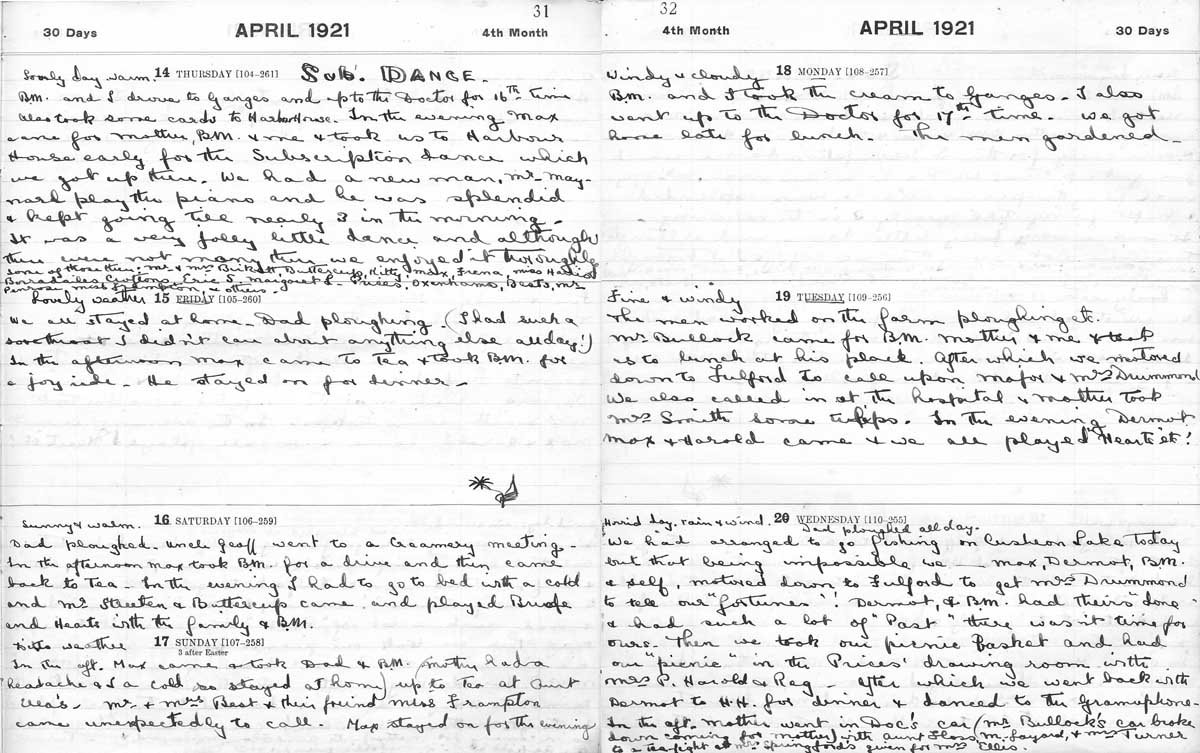 31
30 Days APRIL 1921 4th Month
Lovely day warm. 14 THURSDAY [104-261] Sub. DANCE.
B.M. and I drove to Ganges and up to the Doctor for 16th time
also took some cards to Harbor House. In the evening Max
came for mother, B.M. & me & took us to Harbour
House early for the Subscription dance which
we got up there. We had a new man, Mr. May-
nard play the piano and he was splendid
& kept going till nearly 3 in the morning –
It was a very jolly little dance and although
there were not many there we enjoyed it thoroughly
some of those there: Mr. & Mrs. Birkett, Buttercup, Kitty, Max, Irena, Miss
Borradailes, Eric S– Margaret S– Prices, Oxenhams, Bests, Mr.
& others –
Lovely weather 15 FRIDAY [105-260]
We all stayed at home – Dad ploughing. (I had such a
sore throat I didn't care about anything else all day!)
In the afternoon Max came to tea & took B.M. for
a joy ride – He stayed on for dinner –
Sunny & warm. 16 SATURDAY [106-259]
Dad ploughed. Uncle Geoff went to a Creamery meeting –
In the afternoon Max took B.M. for a drive and then came
back to tea – In the evening I had to go to bed with a cold
and Mr. Streeten & Buttercup came and played
and Hearts with the family & B.M.
Ditto weather 17 SUNDAY [107-258]
3 after Easter
In the aft. Max came & took Dad & B.M. (mother had a
headache & I a cold so stayed at home) up to tea at Aunt
Cea's – Mr. & Mrs. Best & their friend Miss Frampton
came unexpectedly to call. Max stayed on for the evening
32
4th Month APRIL 1921 30 Days
Windy & cloudy 18 MONDAY [108-257]
B.M. and I took the cream to Ganges – I also
went up to the Doctor for 17th time. We got
home late for lunch. The men gardened –
Fine & windy 19 TUESDAY [109-256]
The men worked on the farm ploughing etc.
Mr. Bullock came for B.M. mother & me & took
us to lunch at his place. After which we motored
down to Fulford to call upon Major & Mrs. Drummond
We also called in at the hospital & mother took
Mrs. Smith some tulips. In the evening Dermot
Max & Harold came & we all played "Hearts" etc!
Horrid day, rain & wind. 20 WEDNESDAY [110-255]
Dad ploughed all day.
We had arranged to go fishing on Cusheon Lake today
but that being impossible we — Max, Dermot, B.M.
& self, motored down to Fulford to get Mrs. Drummond
to tell our "fortunes"! Dermot, & B.M. had theirs "done"
& had such a lot of "Past" there wasn't time for
ours. Then we took our picnic basket and had
our "picnic" in the Prices' drawing room with
Mrs. P. Harold & Reg – After which we went back with
Dermot to H.H. for dinner & danced to the Gramophone –
In the aft. mother went in Doc's car (Mr. Bullock's car broke
down coming for mother) with Aunt Floss, M. Layard, & Mrs. Turner
to a tea fight at Mr. Springford's given for Mrs. Ellis.